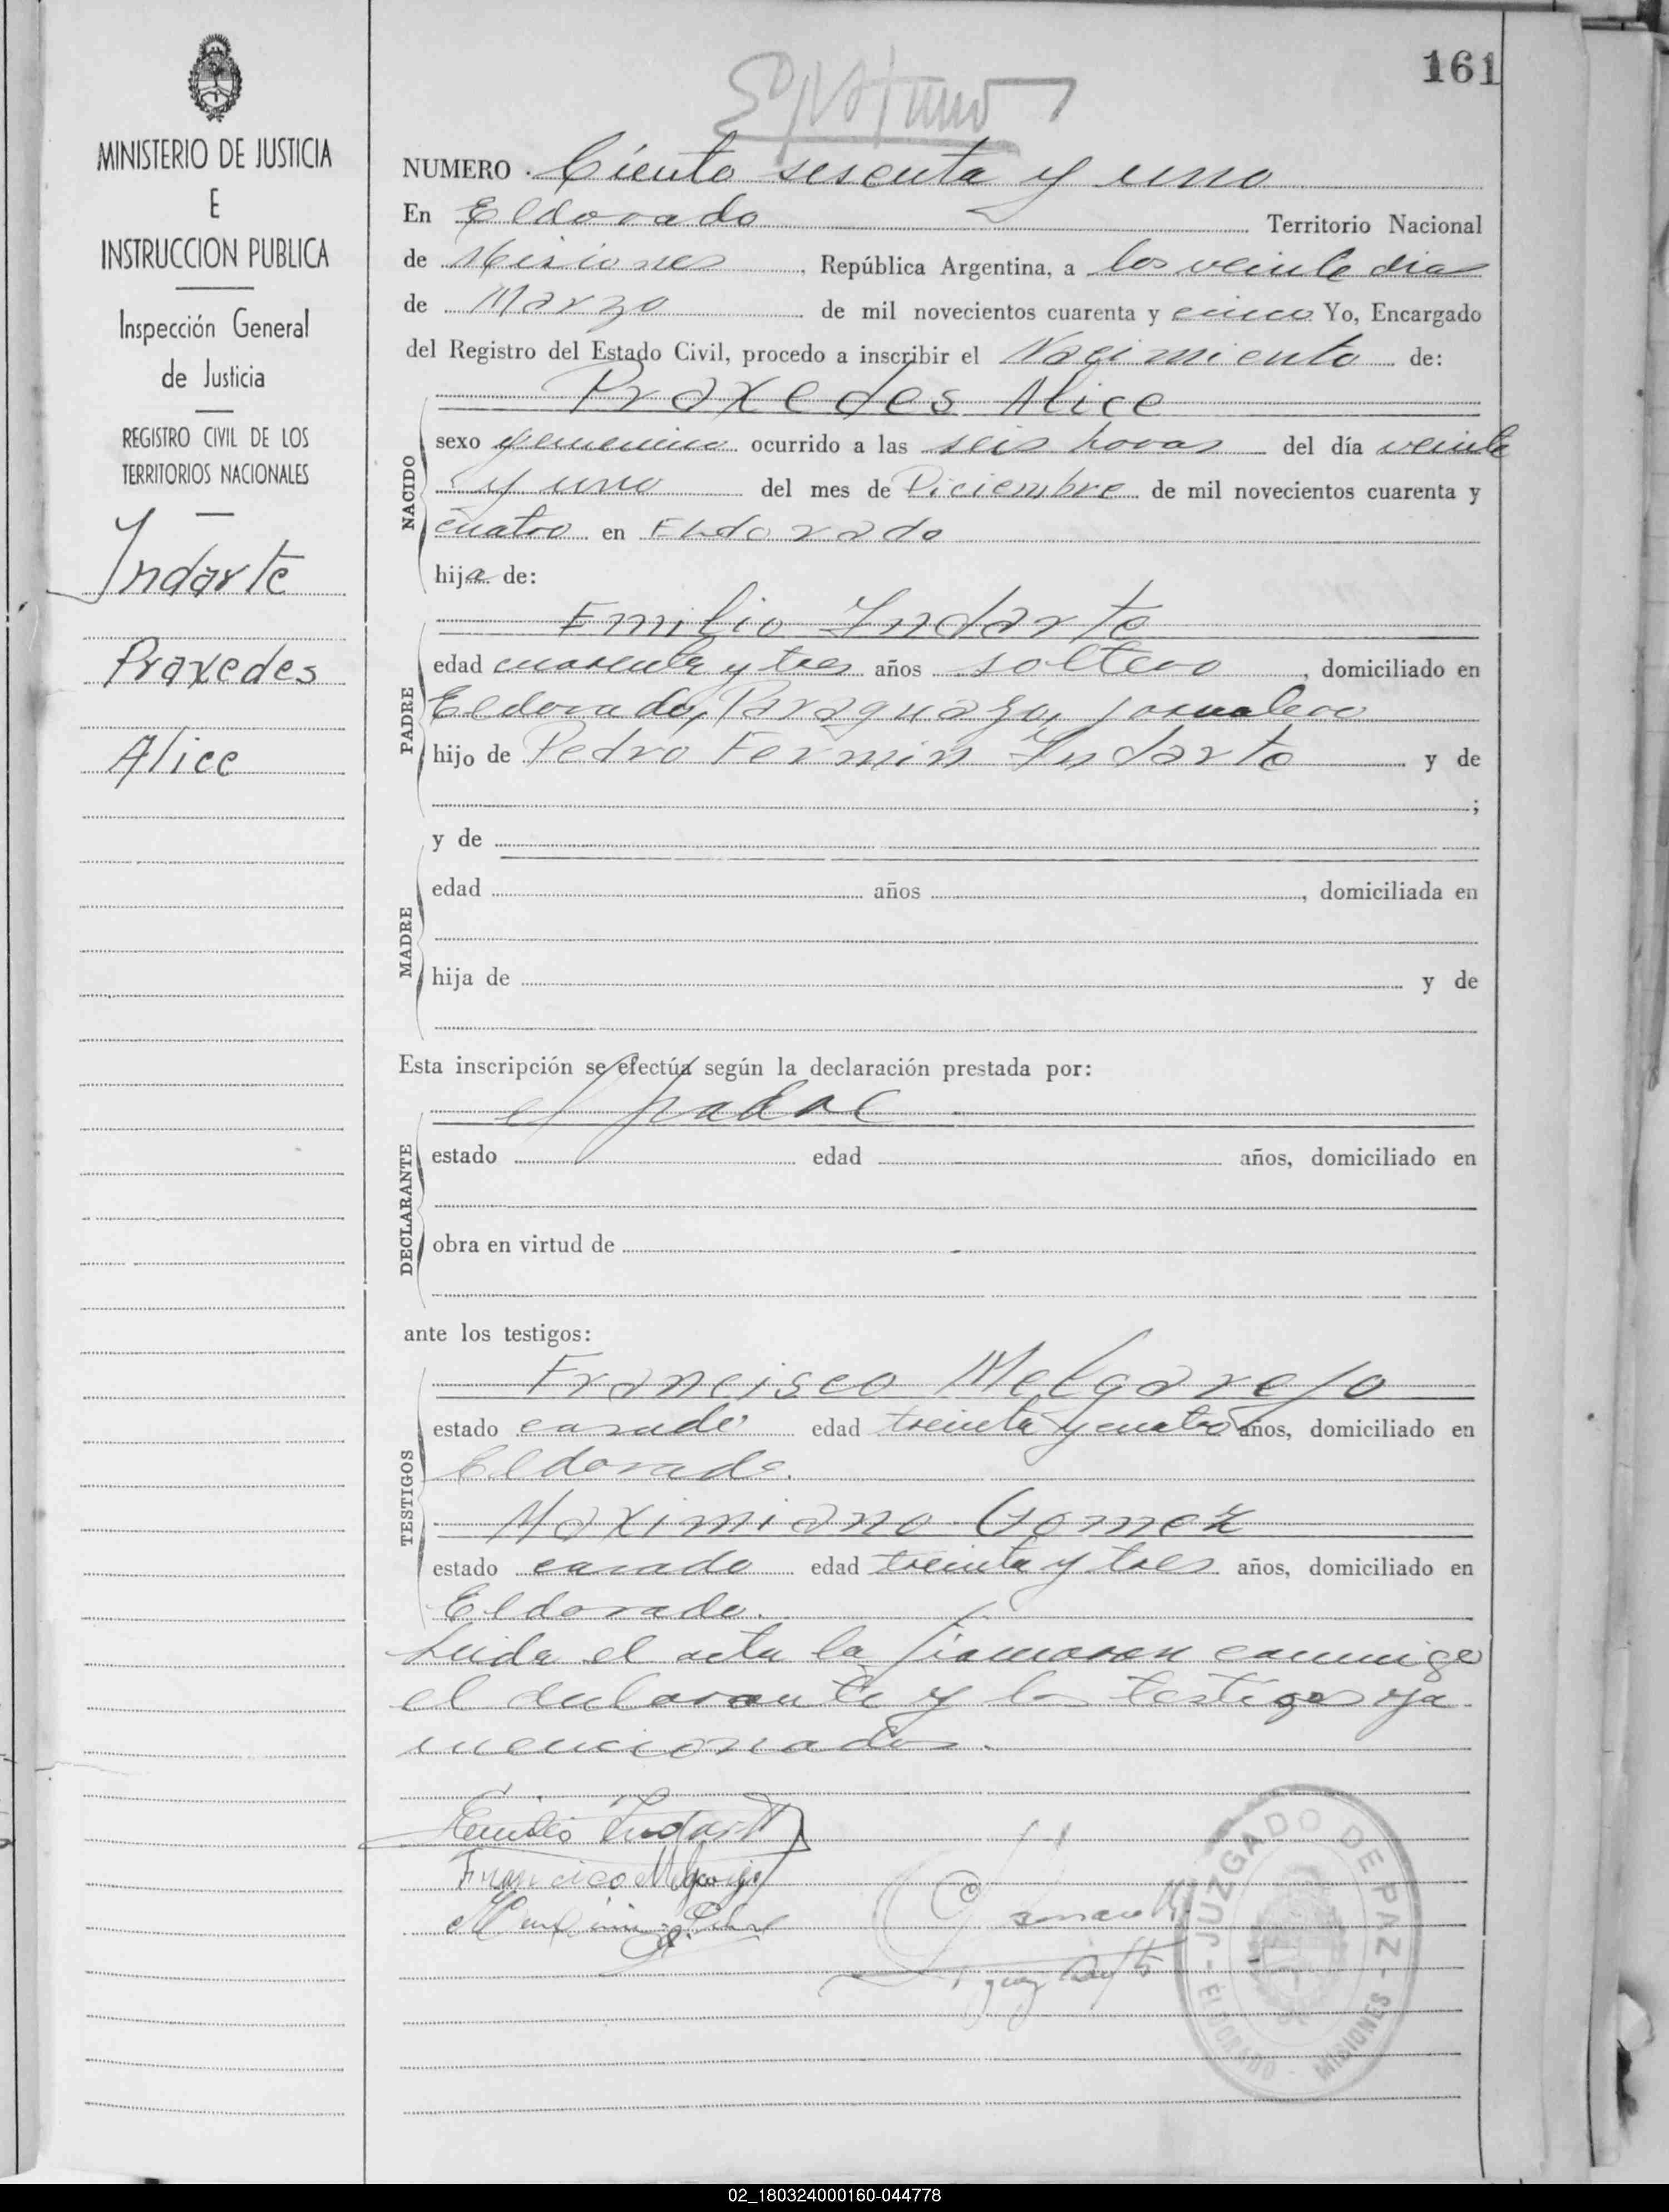 161
MINISTERIO DE JUSTICIA
E
INSTRUCCION PUBLICA
Inspección General
de Justicia
REGISTRO CIVIL DE LOS
TERRITORIOS NACIONALES
Indarte
Praxedes
Alice
NUMERO Ciento sesenta y uno
En Eldorado Territorio Nacional
de Misiones, República Argentina, a los veinte dias
de Marzo de mil novecientos cuarenta y cinco Yo, Encargado
del Registro del Estado Civil, procedo a inscribir el Nacimiento de:
Praxedes Alice
NACIDO
sexo femenino ocurrido a las seis horas del día veinte
y uno del mes de Diciembre de mil novecientos cuarenta y
cuatro en Eldorado
hija de:
Emilio Indarte
PADRE
edad cuarenta y tres años soltero, domiciliado en
Eldorado, Paraguayo, jornalero
hijo de Pedro Fermin Indarte y de
;
y de
MADRE
edad años , domiciliada en
hija de y de
Esta inscripción se efectúa según la declaración prestada por:
el padre
DECLARANTE
estado edad años, domiciliado en
obra en virtud de
ante los testigos:
Francisco Melgarejo
TESTIGOS
estado casado edad treinta y cuatro años, domiciliado en
Eldorado.
Maximiano Gomez
estado casado edad treinta y tres años, domiciliado en
Eldorado.
Leida el acta la firmaron conmigo
el declarante y los testigos ya
mencionados.
Emilio Indarte
Francisco Melgarejo
JUZGADO DE PAZ - MISIONES - ELDORADO -
02_180324000160-044778